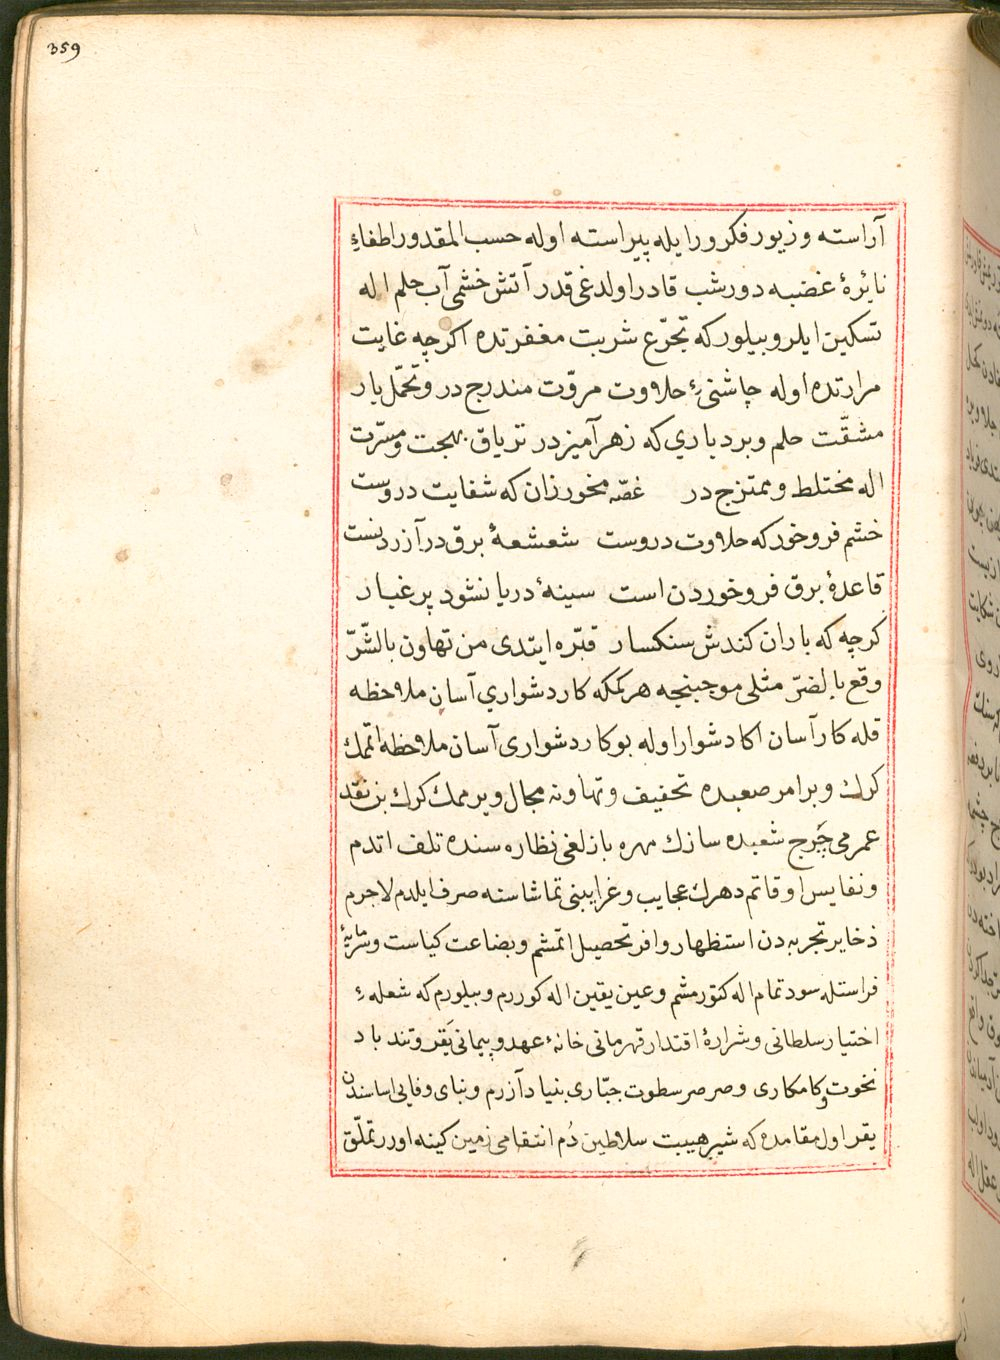 359
آراسته و زیور فکر و رایله پیراسته اوله حسب المقدور اطفاءِ
نائرۀ غضبه دورشب قادر اولدغی قدر آتش خشمی آب حلم اله
تسکین ایلر و بیلور که تجرّع شربت مغفرتده اکرچه غایت
مرارتده اوله چاشنیٔ حلاوت مروّت مندرج در و تحمّل بار
مشقّت حلم و بردباری که زهرآمیزدر تریاق بهجت و مسرّت
اله مختلط و ممتزج در غصّه مخور زان که شفایت دروست
خشم فرو خور که حلاوت دروست شعشعۀ برق در آزردنست
قاعدۀ برق فرو خوردن است سینۀ دریا نشود پر غبار
کرچه که باران کندش سنکسار قبّره ایتدی من تهاون بالشّرّ
وقع بالضرّ مثلی موجبنجه هر کمکه کار دشواری آسان ملاحظه
قله کار آسان اکا دشوار اوله بو کار دشواری آسان ملاحظه اتمك
کرك و بر امر صعبده تخفیف و تهاونه مجال ویرممك کرك بن نقد
عمرمی چَرخ شعبده سازك مهره بازلغی نظاره سنده تلف اتدم
و نفایس اوقاتم دهرك عجایب و غرایبنی تماشاسنه صرف ایلدم لاجرم
ذخایر تجربه دن استظهار وافر تحصیل اتمشم و بضاعت کیاست و
فراستله سود تمام اله کتورمشم و عین یقین اله کوررم و بیلورم که شعلهٔ
اختیار سلطانی و شرارۀ اقتدار قهرمانی خانۀ عهد و پیمانی یَقر و تند باد
نخوت و کامکاری و صرصر سطوت جبّاری بنیاد آزرم و بنای وفایی اساسندن
یقر اول مقامده که شیر هیبت سلاطین دُم انتقامی زمین کینه اورر تملّق